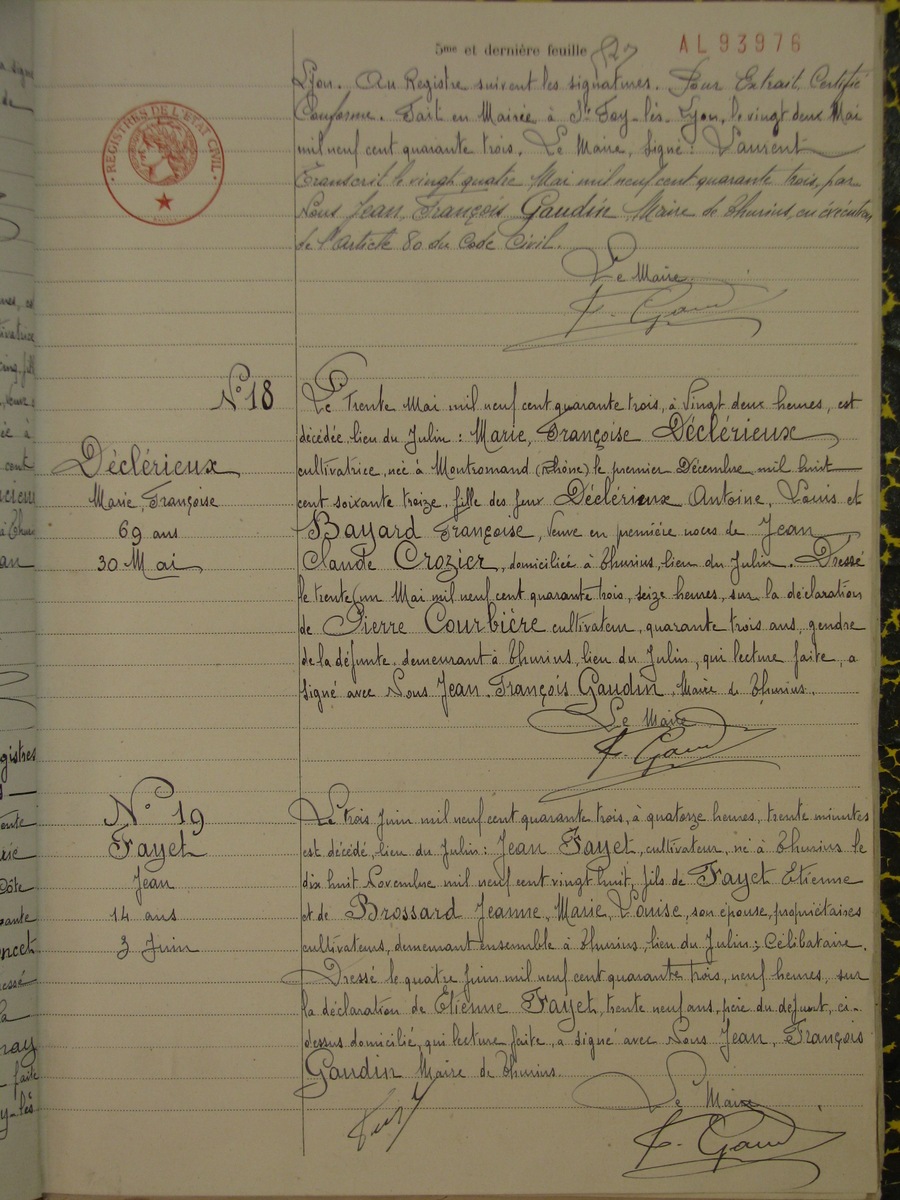 5me et dernière feuille 827
AL93976
REGISTRES DE L'ETAT CIVIL
Lyon. Au Registre suivent les signatures. Pour Extrait Certifié
Conforme. Fait en Mairie à Ste Foy-lès-Lyon, le vingt deux Mai
mil neuf cent quarante trois. Le Maire, Signé: Laurent
Transcrit le vingt quatre Mai mil neuf cent quarante trois, par
Nous Jean, François Gaudin Maire de Thurins, en exécution
de l'article 80 du Code Civil.
Le Maire
F. Gaudin
N° 18
Déclérieux
Marie, Françoise
69 ans
30 Mai
Le Trente Mai mil neuf cent quarante trois, à Vingt deux heures, est
décédée, lieu du Julin: Marie, Françoise Déclérieux
cultivatrice, née à Montromand (Rhône) le premier Décembre mil huit
cent soixante treize, fille des feux Déclérieux Antoine, Louis et
Bayard Françoise, Veuve en première noces de Jean
Claude Crozier, domiciliée à Thurins, lieu du Julin. Dressé
le trente un Mai mil neuf cent quarante trois, seize heures, sur la déclaration
de Pierre Courbière cultivateur, quarante trois ans, gendre
de la défunte, demeurant à Thurins, lieu du Julin, qui lecture faite, a
signé avec Nous Jean, François Gaudin, Maire de Thurins.
Le Maire
F. Gaudin
N° 19
Fayet
Jean
14 ans
3 Juin
Le trois Juin mil neuf cent quarante trois, à quatorze heures, trente minutes
est décédé, lieu du Julin: Jean Fayet, cultivateur, né à Thurins le
dix huit Novembre mil neuf cent vingt huit, fils de Fayet Etienne
et de Brossard Jeanne, Marie, Louise, son épouse, propriétaires
cultivateurs, demeurant ensemble à Thurins, lieu du Julin; Célibataire.
Dressé le quatre Juin mil neuf cent quarante trois, neuf heures, sur
la déclaration de Etienne Fayet, trente neuf ans, père du défunt, ci-
dessus domicilié, qui lecture faite, a signé avec Nous Jean, François
Gaudin Maire de Thurins.
Le Maire
F. Gaudin